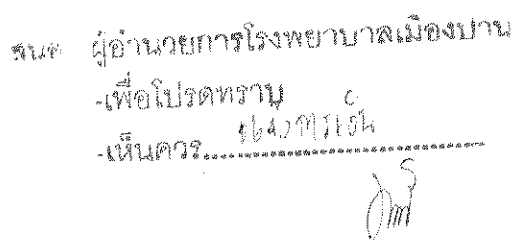 เรียน ผู้อำนวยการโรงพยาบาลเมืองปาน
-เพื่อโปรดทราบ
-เห็นควร..........